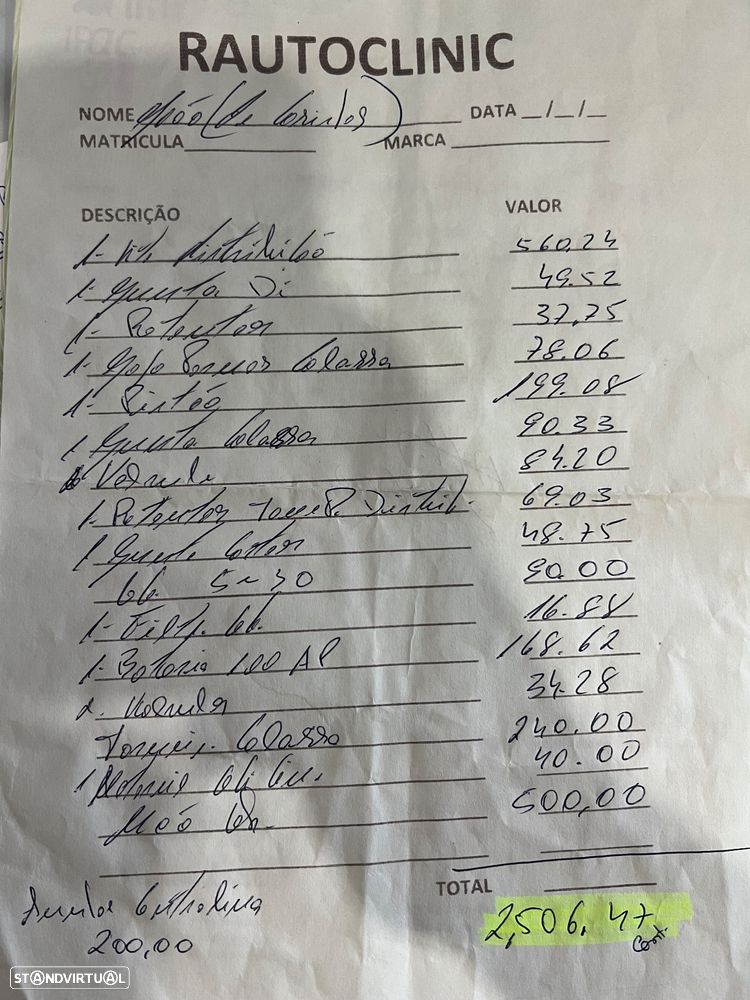 RAUTOCLINIC
NOME João (de Corinlos) DATA _/_/_
MATRÍCULA MARCA
DESCRIÇÃO VALOR
1- Kit distribuição 560,24
1- Junta Di 49.52
1- Retentor 37,75
1- Jogo Pernos Colassa 78.06
1- Pistão 199.08
1 Junta Colassa 90.33
6 Valvula 84.20
1- Retentor Tampa Distrib. 69.03
1 Junta Carter 48.75
6L 5-30 90.00
1- Filt. 16.88
1- Bataria 100 AP 168.62
2. Valvula 34.28
Colassa 240.00
1 40.00
Mão 500,00
TOTAL 2,506.47
Cont.
Centralina
200,00
STANDVIRTUAL